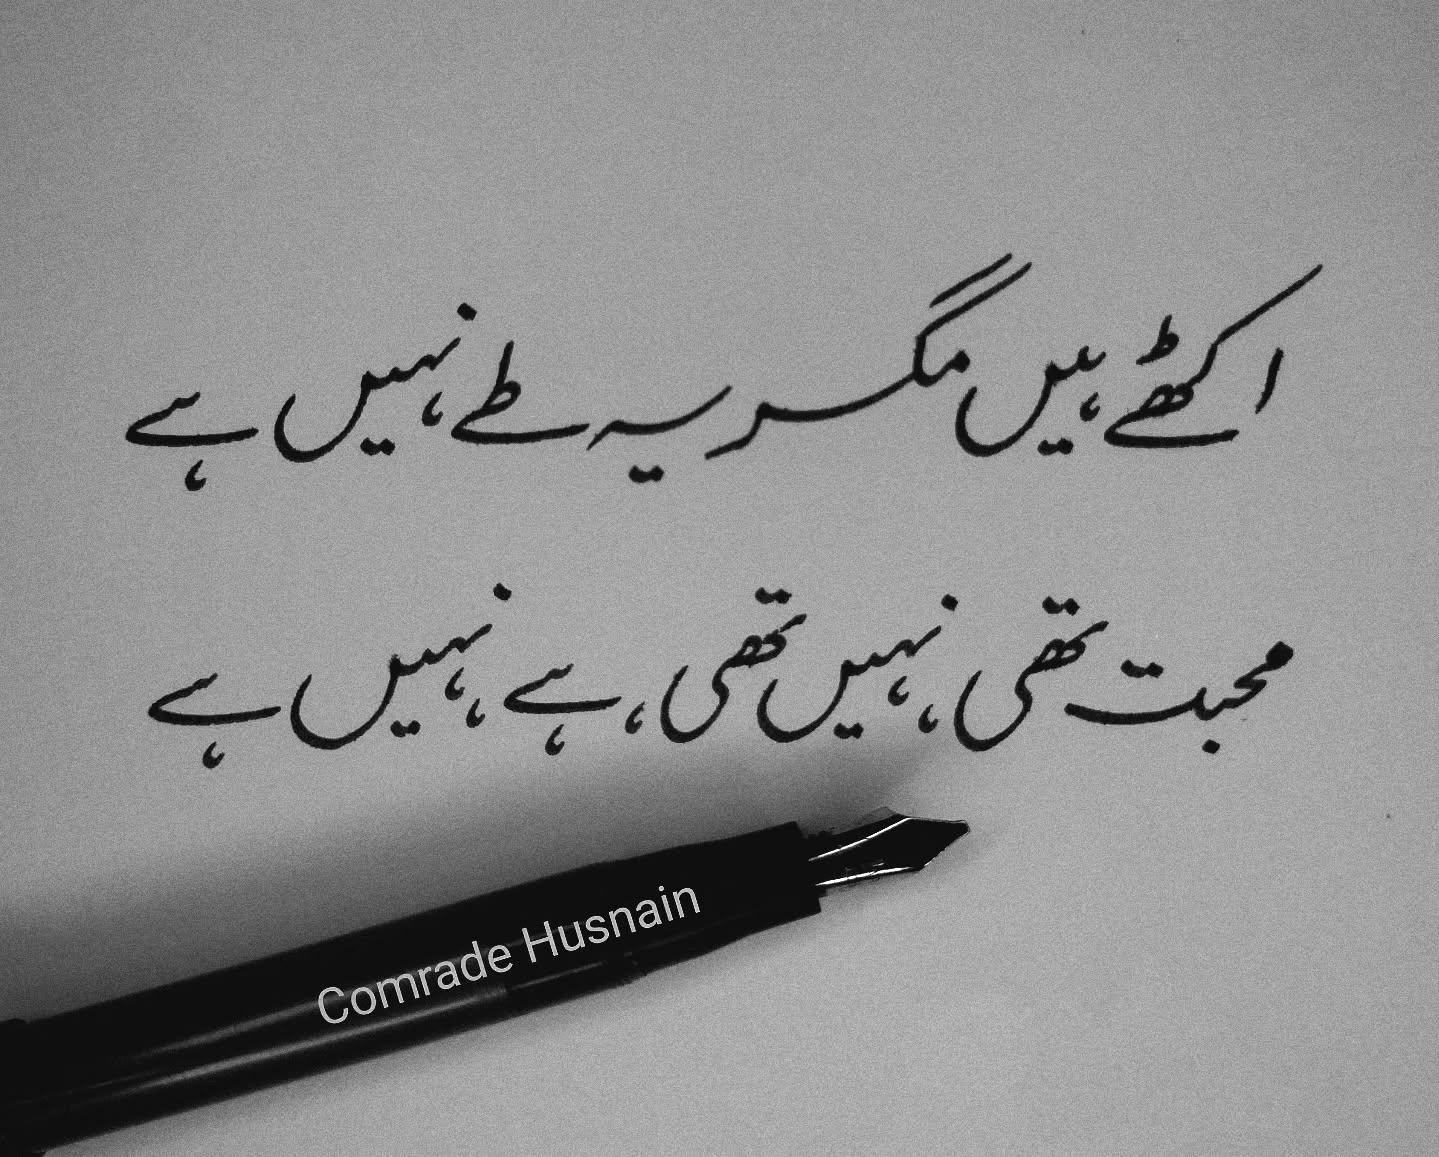 اکٹھے ہیں مگر یہ طے نہیں ہے
محبت تھی، نہیں تھی، ہے، نہیں ہے
Comrade Husnain